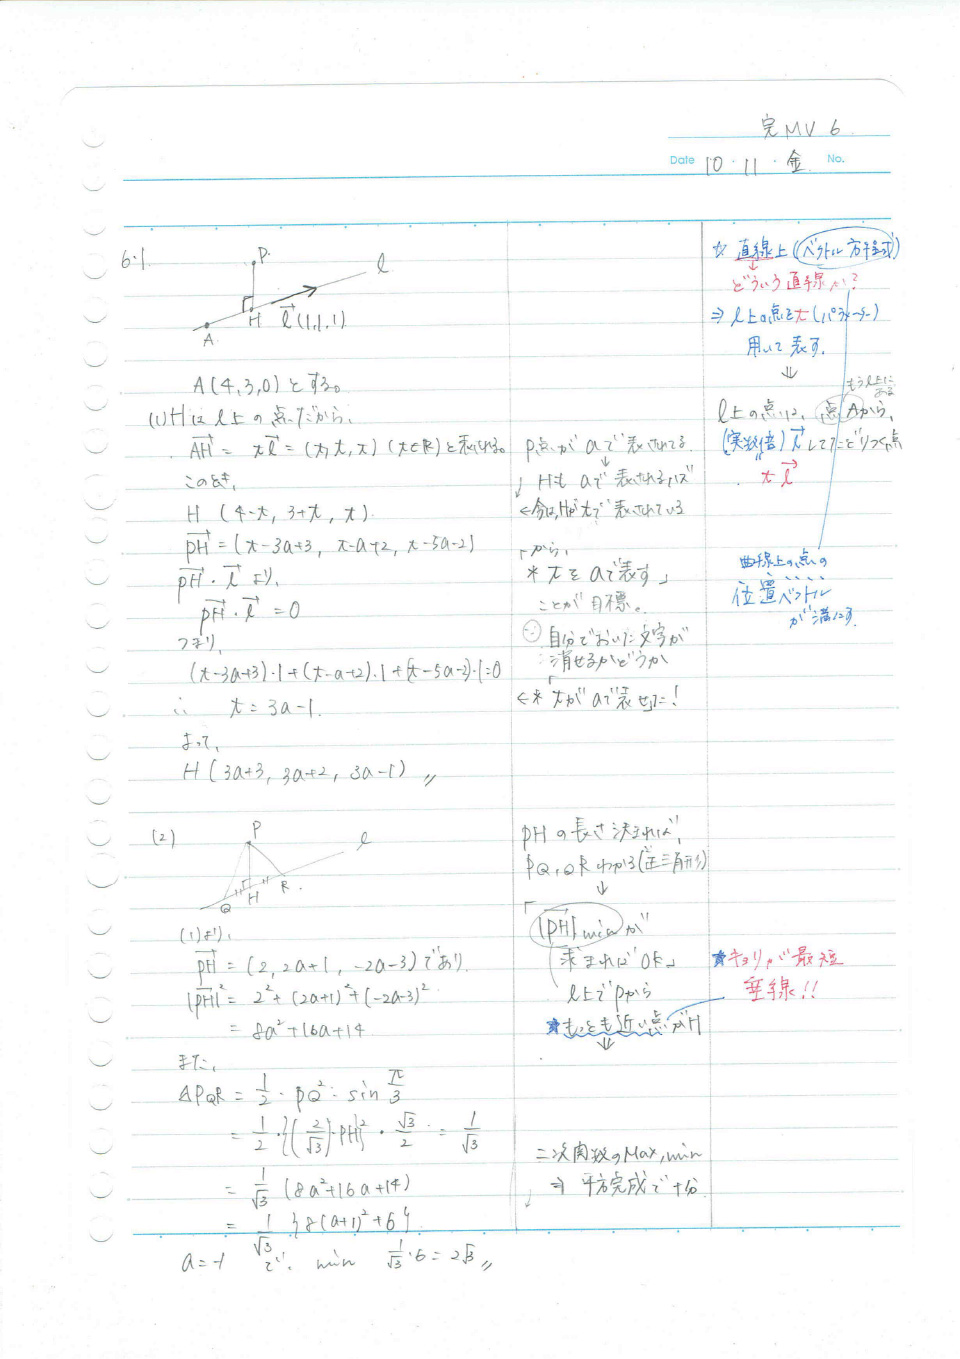 完MV 6
Date 10・11・金 No.
6・1.
P.
l
H
→l(1,1,1)
A
A(4,3,0)とする。
(1) Hはl上の点だから、
→AH = t→l = (t,t,t) (t∈R)と表せる。
このとき、
H (4+t, 3+t, t).
→PH = (t-3a+3, t-a+2, t-5a-2)
→PH・→l より、
→PH・→l = 0
つまり、
(t-3a+3)・1+(t-a+2)・1+(t-5a-2)・1=0
∴ t = 3a-1.
よって、
H (3a+3, 3a+2, 3a-1) 〃
P点がaで表されてる
↓
Hもaで表されるハズ
←今は、Hがtで表されている
「から、
*tをaで表す」
ことが目標。
自分でおいた文字が
消せるかどうか
←*tがaで表せた!
☆ 直線上(ベクトル方程式)
↓
どういう直線か?
⇒ l上の点をt(パラメーター)
用いて表す.
⇓
もうl上にある
l上の点は、点Aから、
(実数倍)→lしてたどりつく点
t→l
曲線上の点の
位置ベクトル
が満たす
(2)
P
l
Q H R.
(1)より、
→PH = (2, 2a+1, -2a-3)であり.
|→PH|² = 2²+(2a+1)²+(-2a-3)²
= 8a²+16a+14
また、
△PQR = 1/2・PQ²・sin π/3
= 1/2・{(2/√3)・PH}²・√3/2 = 1/√3
= 1/√3 (8a²+16a+14)
= 1/√3 {8(a+1)²+6}
a=-1 で、 min 1/√3・6 = 2√3 〃
PHの長さ決まれば、
PQ,QRわかる(正三角形)
↓
「|→PH| minが
求まればOK」
l上でPから
★もっとも近い点がH
⇓
二次関数のMax,min
⇒ 平方完成で十分
★キョリが最短
垂線!!